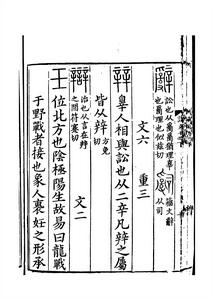 辭 訟也从𤔔𤔔猶理辜也𤔔理也似兹切 𤔲 籒文辭从司
文六 重三
辡 辠人相與訟也从二辛凡辡之屬
皆从辡 方免切
辯 治也从言在辡之閒符蹇切 文二
壬 位北方也陰極陽生故易曰龍戰
于野戰者接也象人褢妊之形承